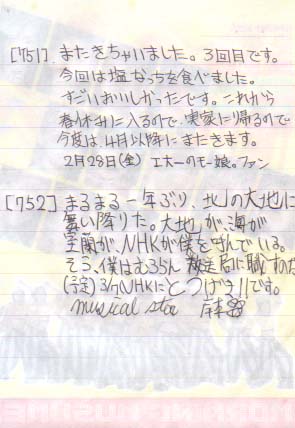 [751] またきちゃいました。3回目です。
今回は塩なっちを食べました。
すごいおいしかったです。これから
春休みに入るので、実家に帰るので
今度は、4月以降にまたきます。
2月28日(金) エホーのモー娘。ファン
[752] まるまる一年ぶり、北の大地に
舞い降りた。大地が、海が
室蘭が、NHKが僕を呼んでいる。
そう、僕はむろらん放送局に職すのだ
(予定) 3/7 NHKにとつげき!!です。
musical star